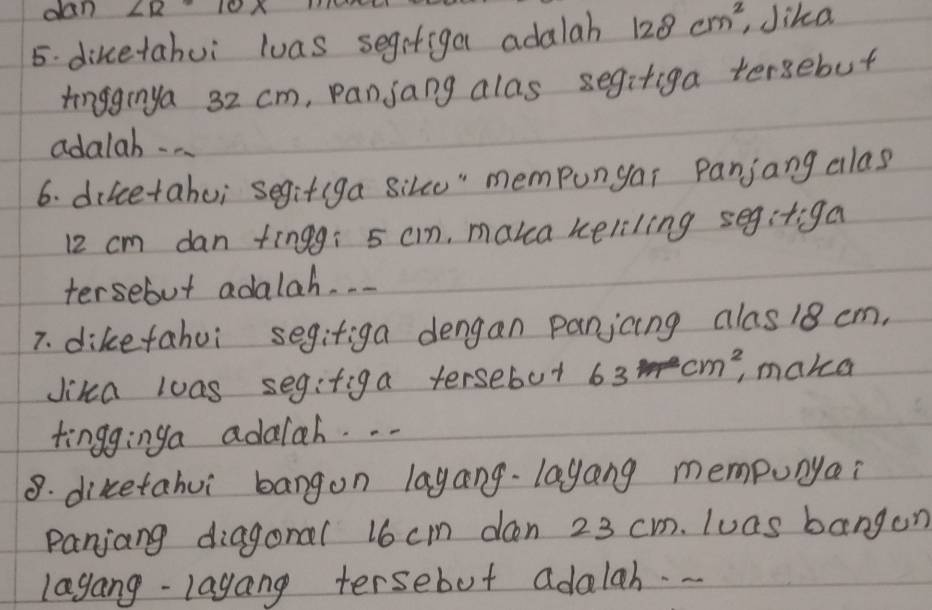 dan ∠R = 10x
5. diketahui luas segitiga adalah 128 cm², Jika
tingginya 32 cm, Panjang alas segitiga tersebut
adalah ...
6. diketahui segitiga siku" mempunyai Panjang alas
12 cm dan tinggi 5 cm. maka keliling segitiga
tersebut adalah ...
7. diketahui segitiga dengan panjang alas 18 cm.
Jika luas segitiga tersebut 63 cm², maka
tingginya adalah ...
8. diketahui bangun layang-layang mempunyai
Panjang diagonal 16 cm dan 23 cm. luas bangun
layang-layang tersebut adalah ...